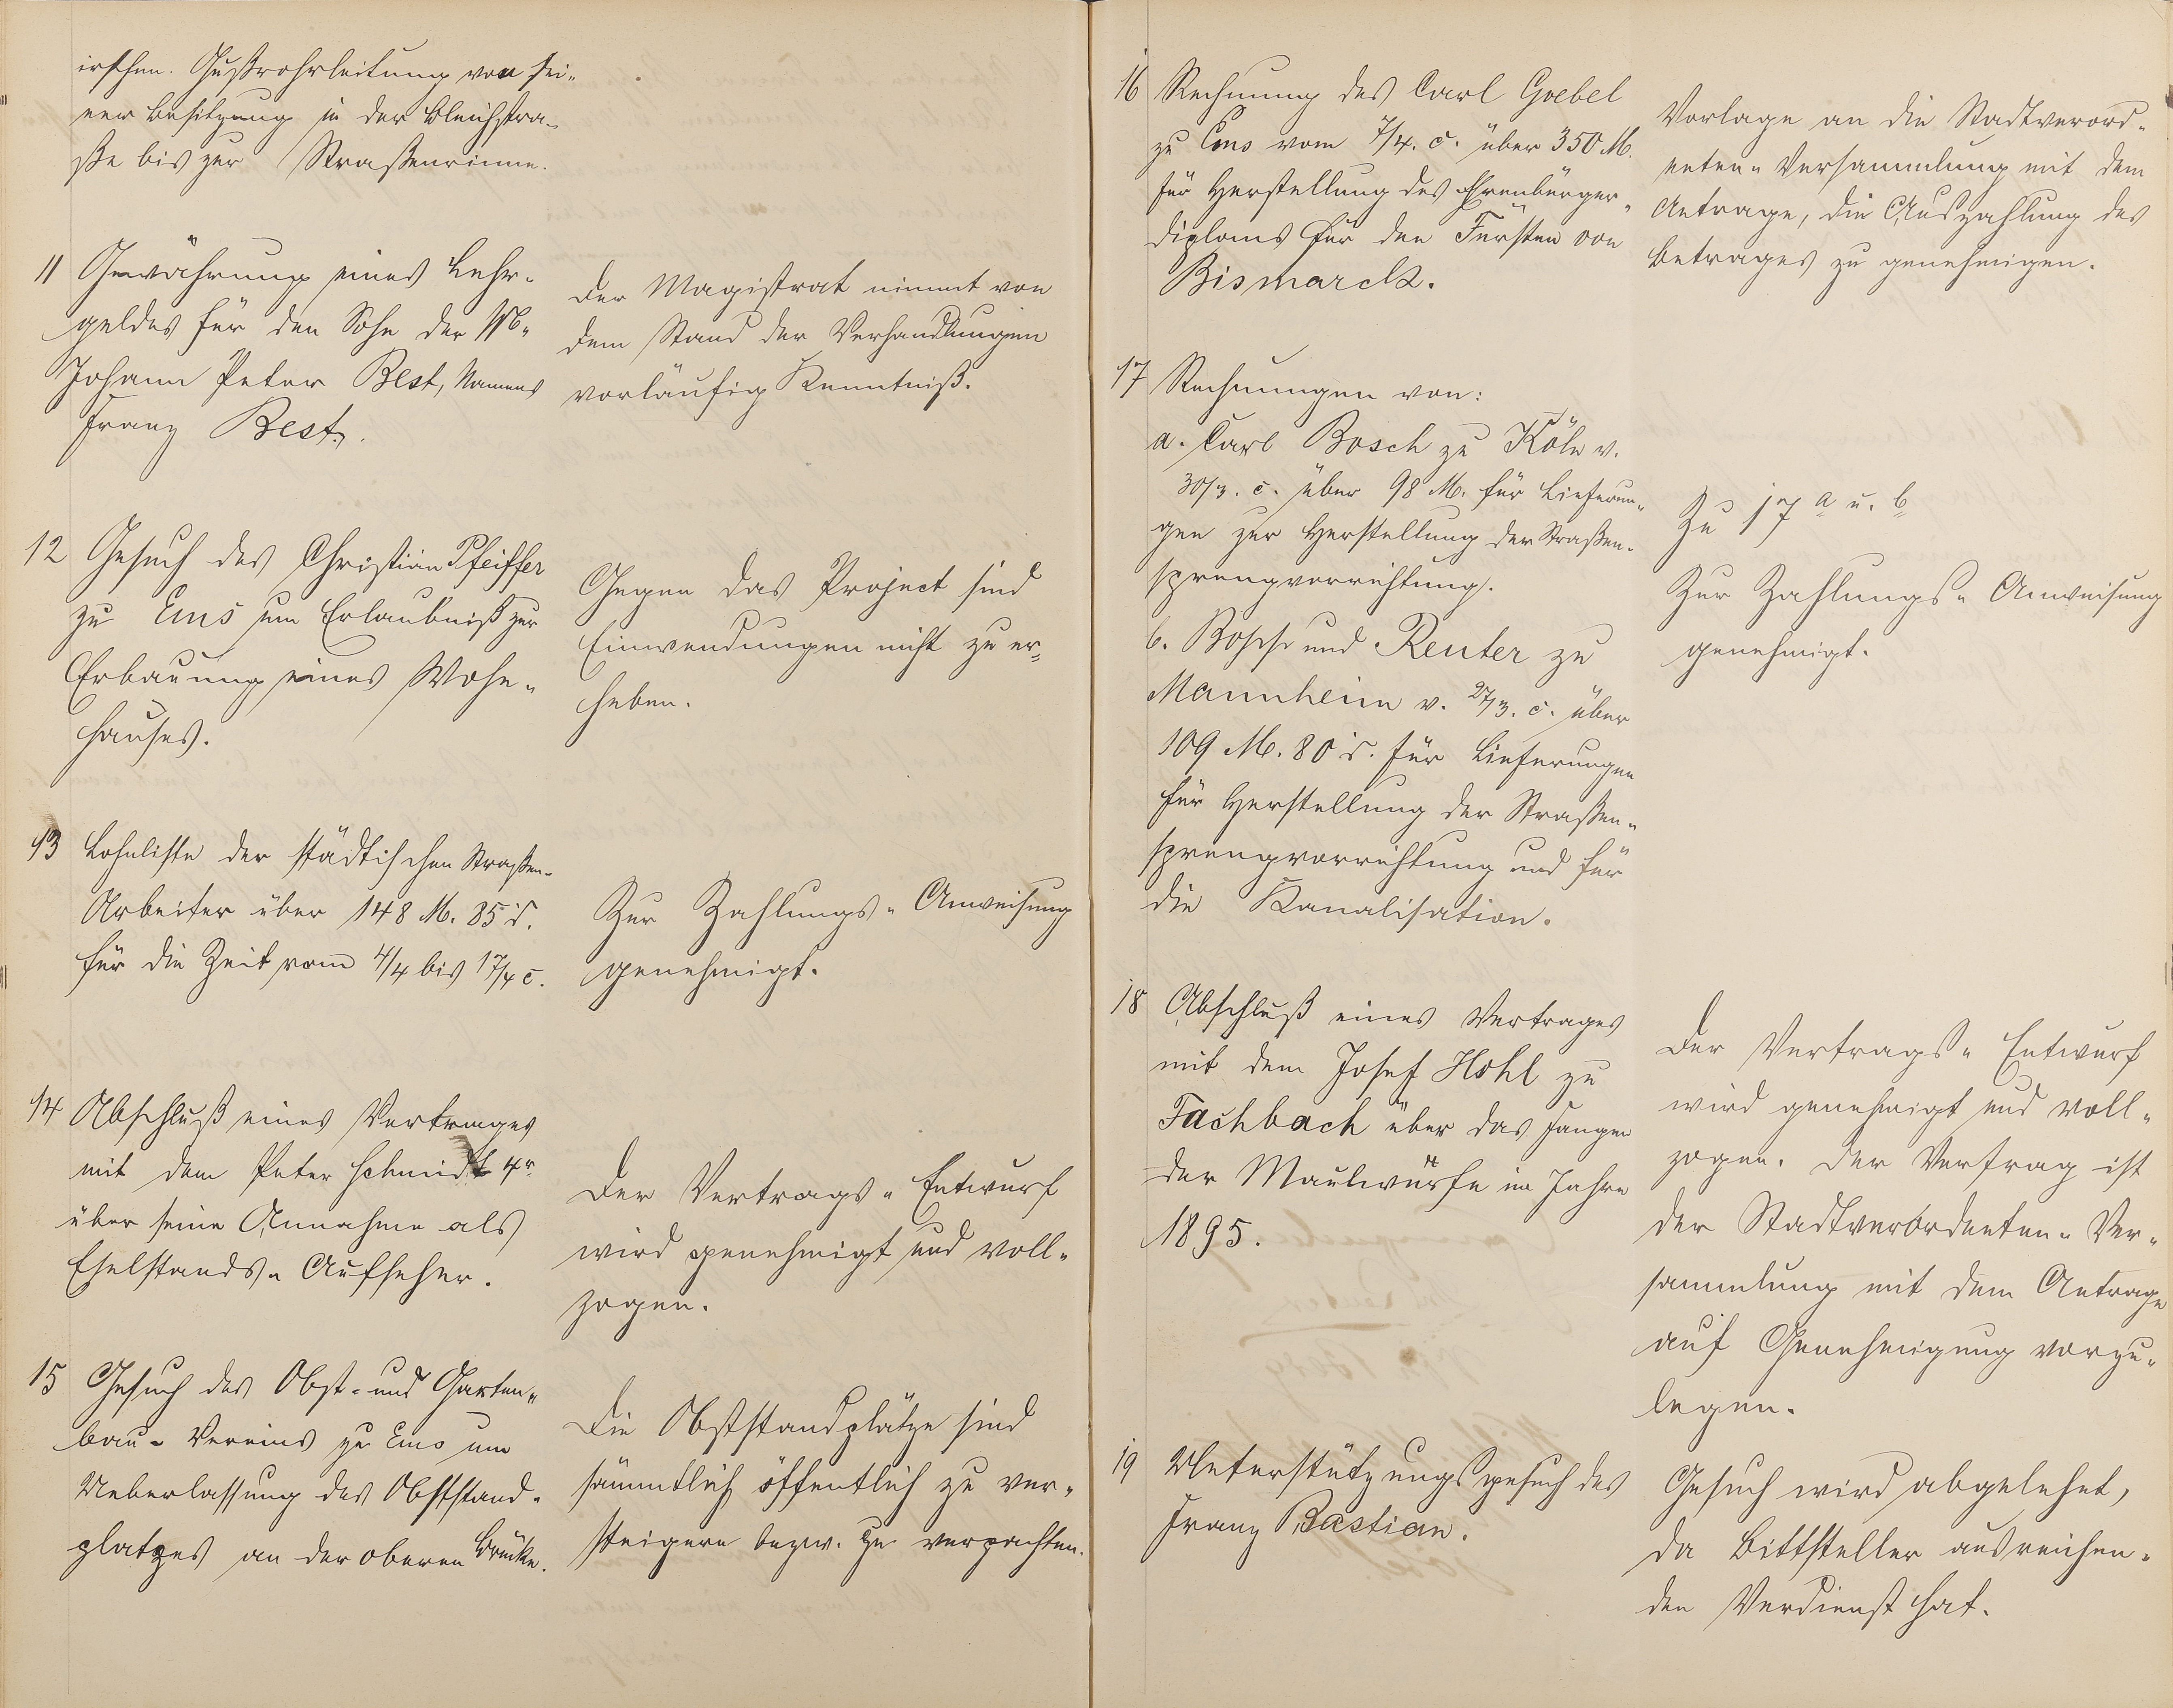 irdischen. Gußrohrleitung von sei-
ner Besitzung in der Bleichstra-
ße bis zur Straßenrinne.
11 Gewährung eines Lehr-
geldes für den Sohn der
Johann Peter Best, Namens
Franz Best.
Der Magistrat nimmt von
dem Stand der Verhandlungen
vorläufig Kenntniß.
12 Gesuch des Christian Pfeiffer
zu Ems um Erlaubniß zur
Erbauung eines Wohn-
hauses.
Gegen das Project sind
Einwendungen nicht zu er-
heben.
13 Lohnliste der städtischen Straßen-
Arbeiter über 148 M. 85 d.
für die Zeit vom 4/4 bis 17/4 c.
Zur Zahlungs-Anweisung
genehmigt.
14 Abschluß eines Vertrages
mit dem Peter Schmidt 4r
über seine Annahme als
Eselstands-Aufseher.
Der Vertrags-Entwurf
wird genehmigt und voll-
zogen.
15 Gesuch des Obst- und Garten-
bau-Vereins zu Ems um
Ueberlassung des Obststand-
platzes an der oberen Brücke.
Die Obststandplätze sind
sämmtlich öffentlich zu ver-
steigern bezw. zu verpachten.
16 Rechnung des Carl Goebel
zu Ems vom 7/4. c. über 350 M.
für Herstellung des Ehrenbürger-
diploms für den Fürsten von
Bismarck.
Vorlage an die Stadtverord-
neten-Versammlung mit dem
Antrage, die Auszahlung des
Betrages zu genehmigen.
17 Rechnungen von:
a. Carl Bosch zu Köln v.
30/3. c. über 98 M. für Lieferun-
gen zur Herstellung der Straßen-
sprengvorrichtung.
b. Bopp und Reuter zu
Mannheim v. 27/3. c. über
109 M. 80 d. für Lieferungen
für Herstellung der Straßen-
sprengvorrichtung und für
die Kanalisation.
Zu 17 a u. b
Zur Zahlungs-Anweisung
genehmigt.
18 Abschluß eines Vertrages
mit dem Josef Hohl zu
Fachbach über das Fangen
der Maulwürfe im Jahre
1895.
Der Vertrags-Entwurf
wird genehmigt und voll-
zogen. Der Vertrag ist
der Stadtverordneten-Ver-
sammlung mit dem Antrage
auf Genehmigung vorzu-
legen.
19 Unterstützungsgesuch des
Franz Bastian.
Gesuch wird abgelehnt,
da Bittsteller ausreichen-
den Verdienst hat.